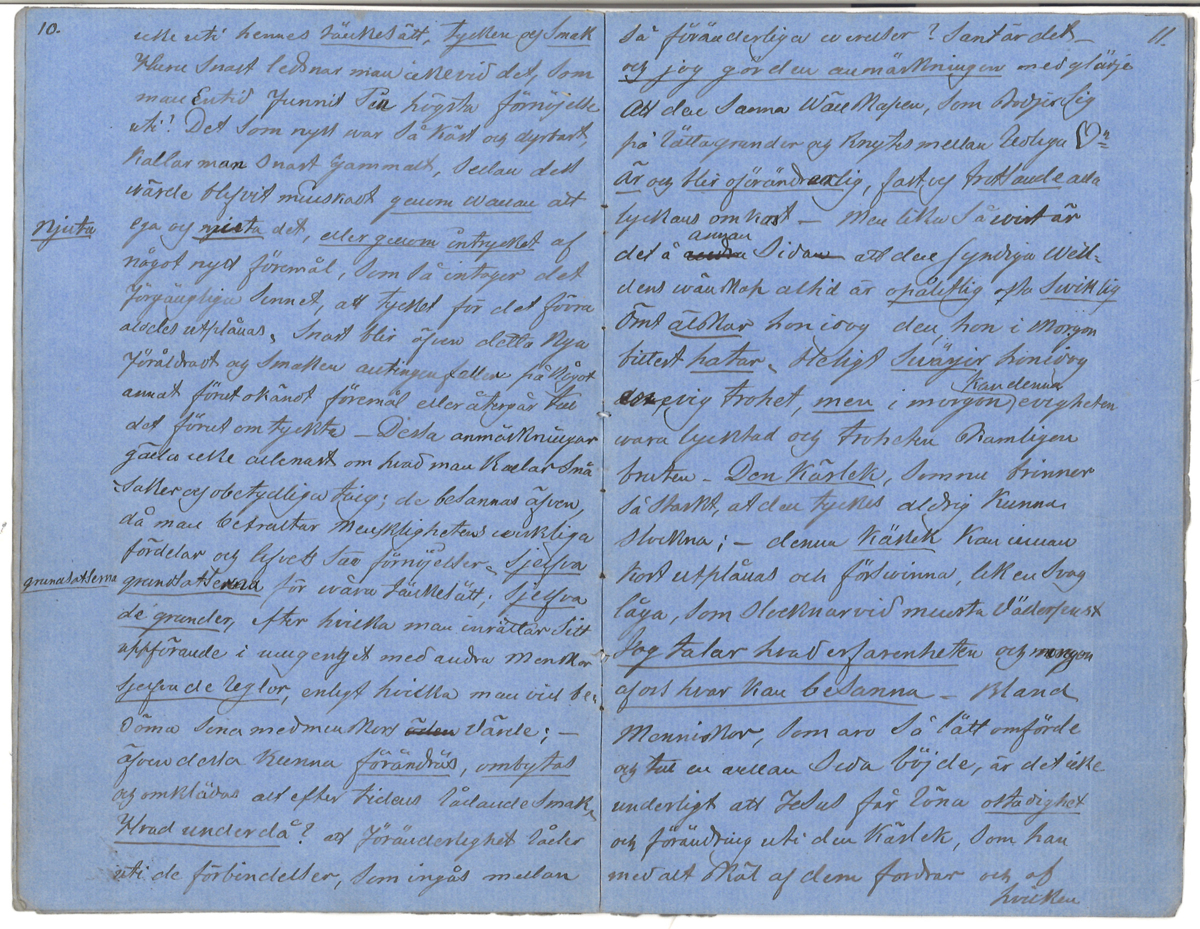 10.
icke uti hennes tänkesätt, tycken og smak
Huru snart ledsnar man icke vid det, som
man Entid funnit sin högsta förnöjelse
uti! Det som nytt war så kärt och dyrbart,
kallar man snart gammalt, sedan dess
wärde blifvit minskadt genom wanan att
Njuta
ega og njuta det, eller genom intrycket af
något nytt föremål, som så intager det
förgängliga sinnet, att tycket för det förra
aldeles utplånas. Snart blir äfven detta Nya
föråldradt og smaken antingen faller på Något
annat förut okändt föremål eller återgår till
det förut omtyckta – Dessa anmärkningar
gälla icke allenast om hvad man kallar små
saker og obetydliga ting; de besannas äfven,
då man betraktar Menskligheten's werkliga
fördelar og lifvets san förnöjelser. Sjelfva
grundsatserna
grundsatserna för wåra tänkesätt; sjelfva
de grunder, efter hvilka man inrättar sitt
uppförande i umgenget med andra Menskor
sjelfva de reglor, enligt hvilka man vill be-
döma sina medmenskors värde; –
äfven dessa kunna förändras, ombytas
og omklädas alt efter tidens rådande smak.
Hvad under då? att föränderlighet råder
uti de förbindelser, som ingås mellan
11.
så föränderliga warelser? Sant är det –
og jag gör den anmärkningen med glädje
att den sanna Wänskapen, som stödjer sig
på rätta grunder og knytes mellan redliga ♡n
Är och blir oföränderlig, fast og trottsande alla
lyckans omkast – Men lika så wist är
annan
det å andra Sidan att den syndiga Werl-
dens wänskap altid är opålitlig ofta swiklig
Ömt älskar hon idag den hon i Morgon
bittert hatar. Heligt swärjer hon idag
kan denna
en evig trohet, men i morgon evigheten
wara lycktad och troheten skamligen
bruten – Den Kärlek, som nu brinner
så starkt, at den tyckes aldrig kunna
slockna; – denna Kärlek kan innan
kort utplånas och förswinna, lik en svag
låga, som slocknar vid minsta väderpust
Jag talar hvad erfarenheten och mången
af oss hvar kan besanna – Bland
Menniskor, som äro så lätt omförde
og till en annan Sida böjde, är det icke
underligt att Jesus får röna ostadighet
och förändring uti den Kärlek, som han
med alt skäl af dem fordrar och af
hvilken